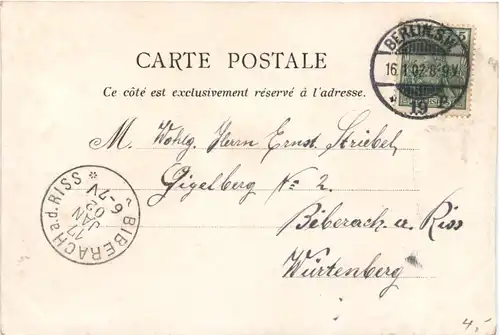 BERLIN. S.W.
16.1.02.8-9V.
* 19 *
5
CARTE POSTALE
Ce côté est exclusivement réservé à l'adresse.
M. Wohlg. Herrn Ernst Striebel,
Gigelberg No 2.
Biberach a. Riss
Würtenberg
* BIBERACH a.d. RISS *
17
JAN
02
6-7V
4,-